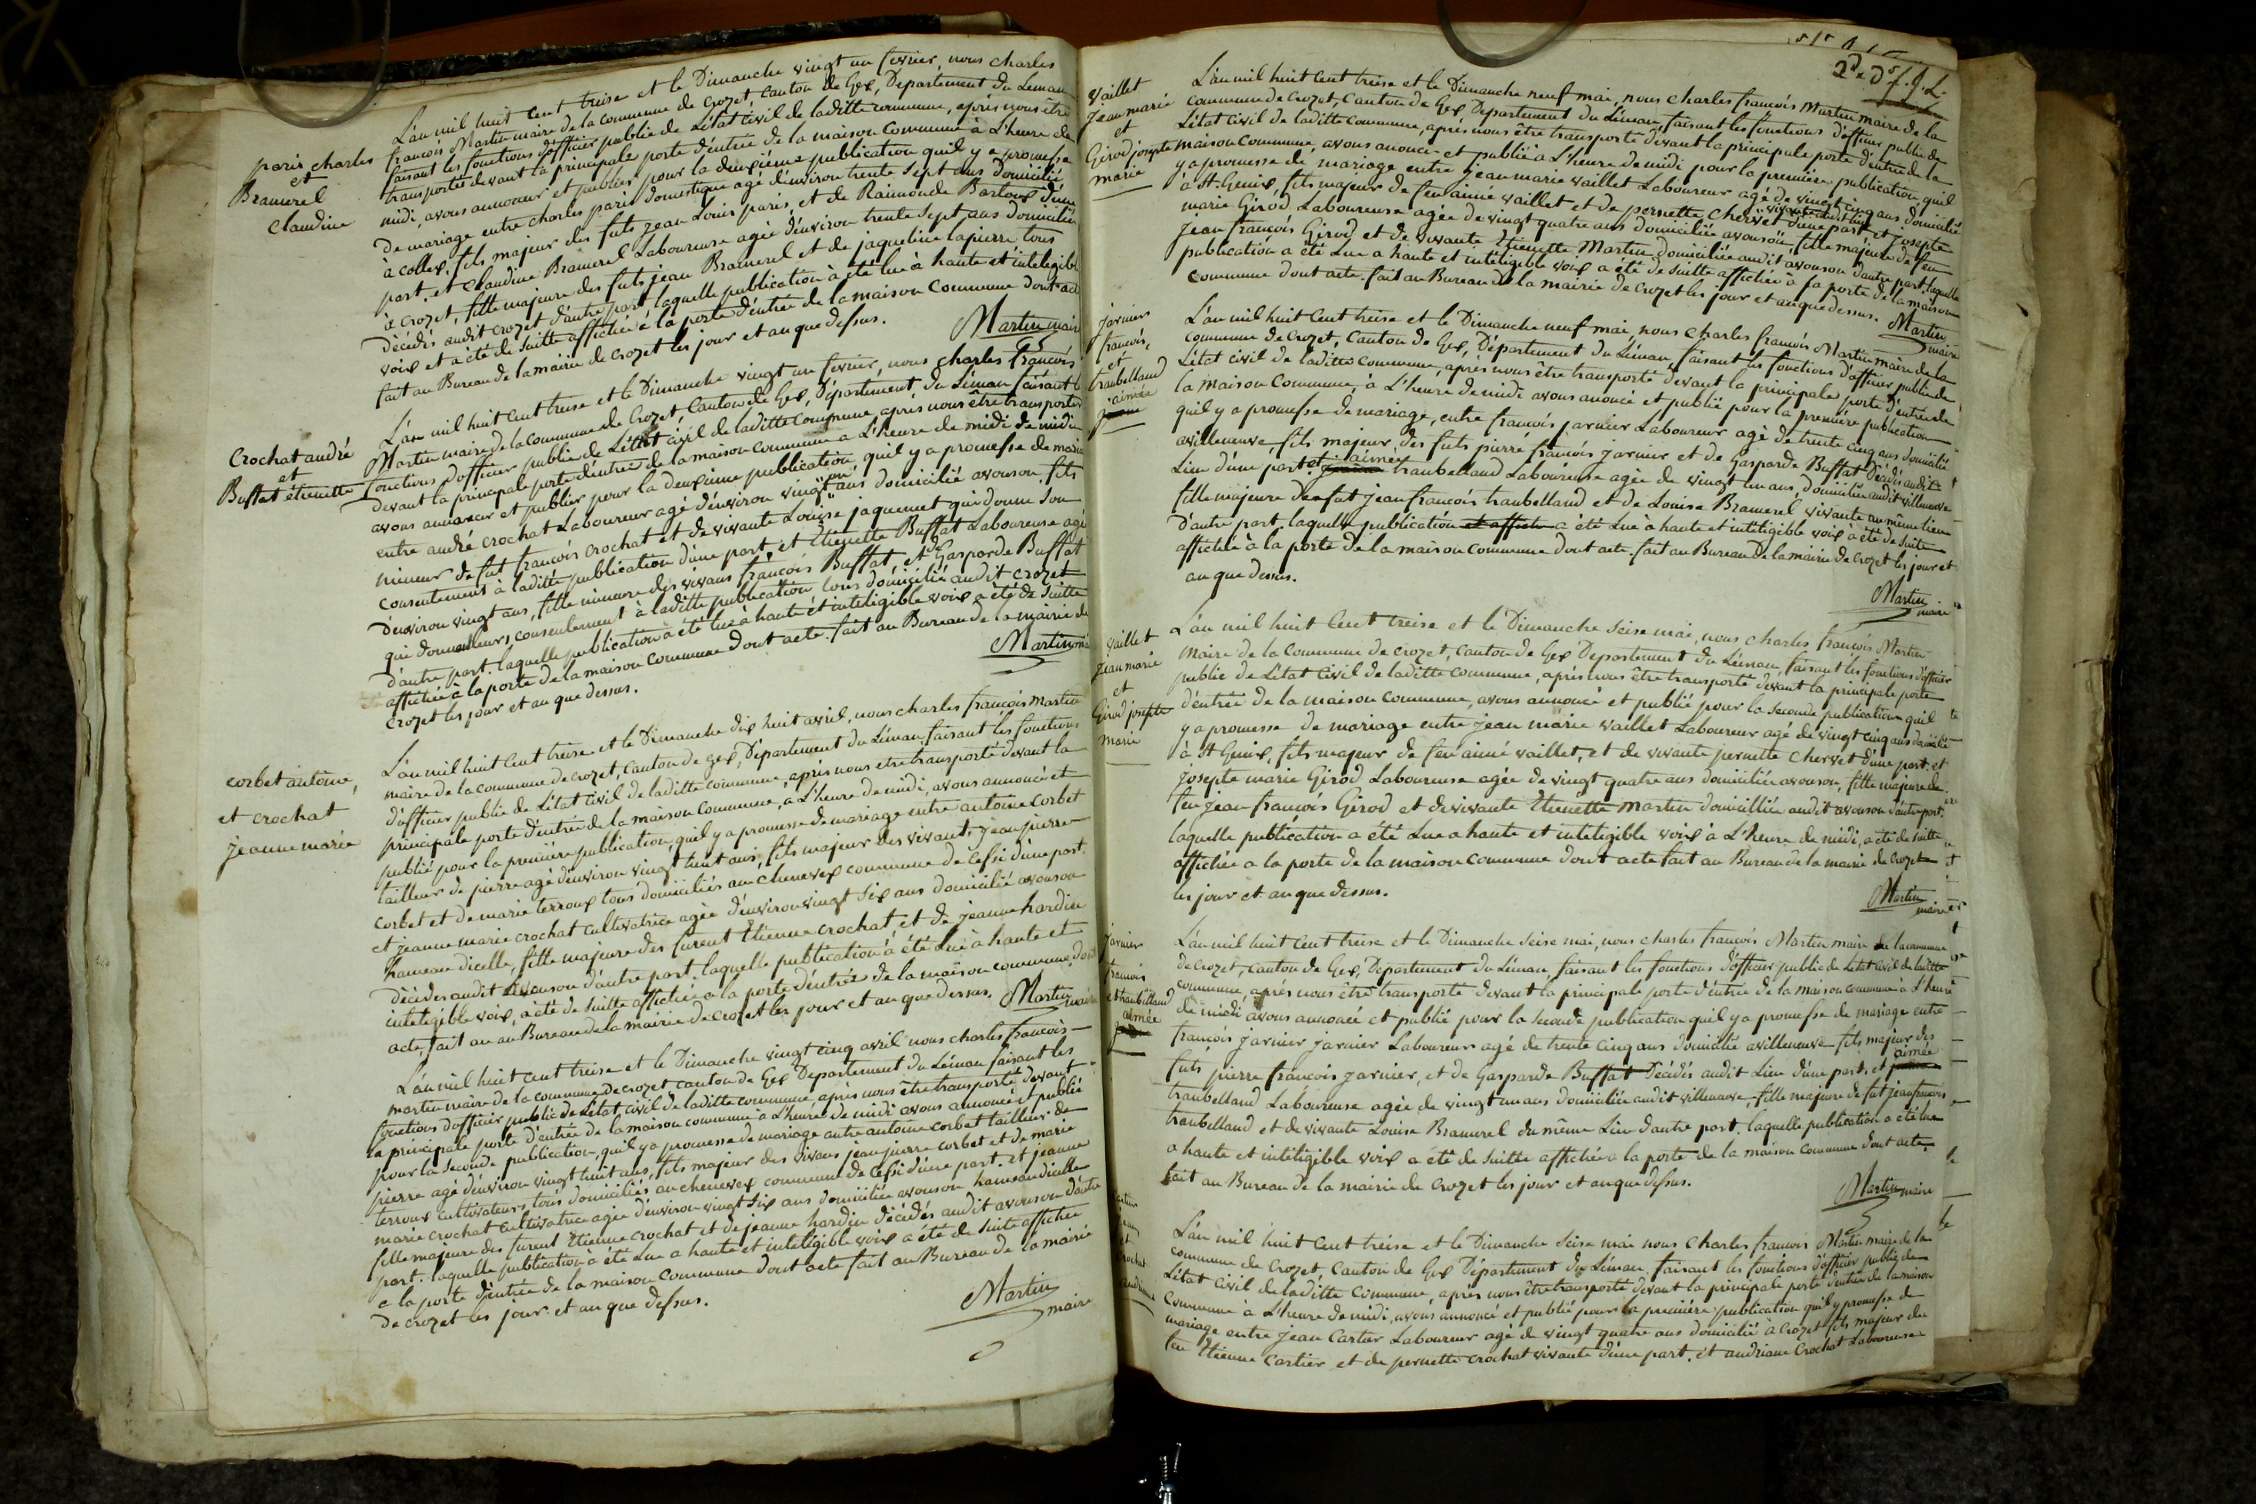 paris charles
et
Bramerel
claudine
L'an mil huit cent treise et le Dimanche vingt un fevrier, nous charles
françois Martin maire de la commune de Crozet canton de Gex, Departement du Leman
faisant les fonctions d'officier public de L'état civil de laditte commune, aprés nous être
transportés devant la principale porte d'entrée de la maison commune à L'heure de
midi, avons annoncer et publier pour la deuxiéme publication quil y a promesse
de mariage entre charles paris domestique agé d'environ trente sept ans Domicilié
à collex, fils majeur des futs jean Louis paris, et de Raimonde Bastous d'une
part, et Claudine Bramerel Laboureuse agée d'environ trente sept ans domiciliée
à Crozet, fille majeure des futs jean Bramerel et de jaqueline lapierre tous
décédés audit crozet d'autre part laquelle publication à été lue à haute et inteligible
voix et a été de suitte affichée à la porte d'entrée de la maison commune dont act
fait au Bureau de la mairie de crozet les jour et an que dessus.
Martin maire
Crochat andré
et
Buffat étienette
L'an mil huit cent treise et le Dimanche vingt un fevrier, nous charles françois
Martin maire de la commune de Crozet, Canton de Gex, Département du Léman faisant l
fonctions d'officier public de L'état civil de laditte commune, aprés nous être transporter
devant la principale porte d'entrée de la maison commune a L'heure de midi de midi
avons annoncer et publier pour la deuxieme publication, quil y a promesse de maria
entre andré crochat Laboureur agé d'environ vingt un ans domicilié avouson, fils
mineur de fut françois crochat et de vivante Louise jaquemet qui donne son
consentement à laditte publication d'une part, et Etienette Buffat Laboureuse agé
d'environ vingt ans, fille mineure des vivans françois Buffat, et de Gasparde Buffat
qui donne leurs consentement à laditte publication, tous domicilié audit crozet
d'autre part. laquelle publication a été lue à haute et inteligible voix a été de suitte
affichée à la porte de la maison commune dont acte. fait au Bureau de la mairie de
Crozet les jour et an que dessus.
Martin
corbet antoine,
et crochat
jeanne marie
L'an mil huit cent treise et le Dimanche dix huit avril, nous charles françois Martin
maire de la commune de crozet, canton de gex, Département du Léman, faisant les fonctions
d'officier public de L'état civil de laditte commune, aprés nous etre transporté devant la
principale porte d'entrée de la maison commune, a L'heure de midi, avons annoncé et
publié pour la premiére publication, quil y a promesse de mariage entre antoine corbet
tailleur de pierre agé d'environ vingt huit ans, fils majeur des vivants jean pierre
corbet et de marie terroux tous domiciliés au chenevex commune de Cessi d'une part
et jeanne marie crochat cultivatrice agée d'environ vingt six ans domicilié avouson
hameau dicelle, fille majeure des furent Etienne crochat, et de jeanne hardin
décédés audit avouson d'autre part. laquelle publication à été lue à haute et
inteligible voix, a été de suitte affichée a la porte d'entrée de la maison commune dont
acte, fait au au Bureau de la mairie de crozet les jour et an que dessus.
Martin maire
L'an mil huit cent treise et le Dimanche vingt cinq avril nous charles françois
Martin maire de la commune de crozet canton de Gex Département du Léman faisant les
fonctions d'officier public de L'état civil de laditte commune, aprés nous être transporté devant
la principale porte d'entrée de la maison commune a L'heure de midi avons annoncé et publié
pour la seconde publication, quil y a promesse de mariage entre antoine corbet tailleur de
pierre agé d'environ vingt huit ans, fils majeur des vivans jean pierre corbet et de marie
terroux cultivateurs, tous domiciliés au chenevex commune de Cessi d'une part. et jeanne
marie crochat cultivatrice agée d'environ vingt six ans domiciliée avouson hameau dicelle
fille majeure des furent Etienne crochat et de jeanne hardin décédés audit avouson d'autre
part. laquelle publication à été Lue a haute et inteligible voix a été de suite affichée
a la porte d'entrée de la maison commune dont acte fait au Bureau de la mairie
de crozet les jour et an que dessus.
Martin
maire
2
vaillet
Jean marie
et
Girod josepte
marie
L'an mil huit cent treise et le Dimanche neuf mai, nous charles françois Martin maire de la
commune de Crozet, Canton de Gex Departement du Léman, faisant les fonctions d'officier public de
L'état civil de laditte commune, aprés nous être transporté devant la principale porte d'entrée de la
maison commune, avons anoncé et publié à L'heure de midi pour la premiere publication quil
y a promesse de mariage entre jean marie vaillet Laboureur agé de vingt cinq ans domicilié
à St. Genix, fils majeur de feu aimé vaillet et de pernette chervet vivante audit lieu d'une part et josepte
marie Girod Laboureuse agée de vingt quatre ans domiciliée avouson, fille majeure de feu
jean françois Girod et de vivante Etienette Martin domiciliée audit avouson d'autre part, laquelle
publication a été Lue a haute et inteligible voix a été de suitte affichée à la porte de la maison
commune dont acte. fait au Bureau de la mairie de crozet les jour et an que dessus.
Martin
maire
jarnier
françois,
et
traubelland
aimée
L'an mil huit cent treise et le Dimanche neuf mai, nous charles françois Martin maire de la
commune de Crozet, Canton de Gex, Département du Léman, faisant les fonctions d'officier public de
L'état civil de laditte commune, aprés nous être transporté devant la principale porte d'entrée de
la maison commune, à L'heure de midi avons anoncé et publié pour la premiére publication
quil y a promesse de mariage, entre françois jarnier Laboureur agé de trente cinq ans domicilié
avilleneuve fils majeur des futs pierre françois jarnier et de Gasparde Buffat décédés audit
Lieu d'une part et aimée traubelland Laboureuse agée de vingt un ans, domiciliée audit villeneuve
fille majeure de fut jean françois traubelland et de Louise Bramerel vivante au même lieu
d'autre part, laquelle publication et affiche a été Lue à haute et inteligible voix à été de suite
affichée à la porte de la maison commune dont acte. fait au Bureau de la mairie de crozet les jour et
an que dessus.
Martin
maire
vaillet
jean marie
et
Girod josepte
marie
L'an mil huit cent treise et le Dimanche seise mai, nous charles françois Martin
Maire de la commune de crozet, canton de Gex Departement du Léman, faisant les fonctions d'officier
public de L'état Civil de laditte commune, aprés nous être transporté devant la principale porte
d'entrée de la maison commune, avons annoncé et publié pour la seconde publication quil
y a promesse de mariage entre jean marie vaillet Laboureur agé de vingt cinq ans domicilié
à St Genix, fils majeur de feu aimé vaillet, et de vivante pernette Chervet d'une part. et
josepte marie Girod Laboureuse agée de vingt quatre ans domiciliée avouson, fille majeure de
feu jean françois Girod et de vivante Etienette Martin domicilliée audit avouson d'autre part.
laquelle publication a été Lue a haute et inteligible voix à L'heure de midi, a été de suitte
affichée a la porte de la maison commune dont acte fait au Bureau de la mairie de crozet
les jour et an que dessus.
Martin
maire
jarnier
françois
et traubelland
aimée
L'an mil huit cent treise et le Dimanche seise mai, nous charles françois Martin maire de la commune
de crozet, canton de Gex, Departement du Léman, faisant les fonctions d'officier public de L'état civil de laditte
commune, aprés nous être transporté devant la principale porte d'entrée de la maison commune a L'heure
de midi avons annoncé et publié pour la seconde publication quil y a promesse de mariage entre
françois jarnier jarnier Laboureur agé de trente cinq ans domicilié avilleneuve fils majeur des
futs pierre françois jarnier, et de Gasparde Buffat Décédés audit Lieu d'une part, et aimée
traubelland Laboureuse agée de vingt un ans domiciliée audit villeneuve, fille majeure de fut jean françois
traubelland et de vivante Louise Bramerel du même Lieu d'autre part. laquelle publication a été lue
a haute et inteligible voix a été de suitte affichée a la porte de la maison commune dont acte,
fait au Bureau de la mairie de Crozet les jour et an que dessus.
Martin maire
L'an mil huit cent treise et le Dimanche seise mai nous charles françois Martin maire de la
commune de Crozet Canton de Gex Département du Léman, faisant les fonctions d'officier public de
L'état Civil de laditte Commune, aprés nous être transporté devant la principale porte d'entrée de la maison
Commune a L'heure de midi, avons annoncé et publié pour la premiére publication quil y promesse de
mariage entre jean Cartier Laboureur agé de vingt quatre ans domicilié à Crozet fils majeur de
feu Etienne Cartier et de pernette crochat vivante d'une part. et andriane Crochat Laboureuse